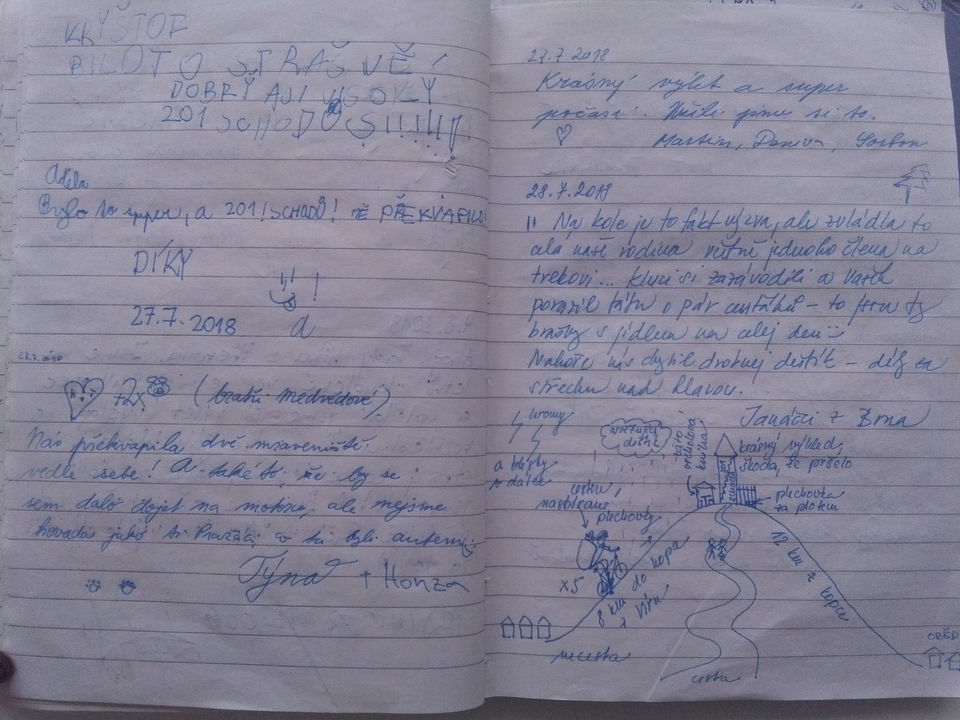 KRYŠTOF
PILOT O STRAŠNĚ!
DOBRÝ AJI VISOKÝ
201 SCHODŮ
Adéla
Bylo to super, a 201! SCHODŮ! MĚ PŘEKVAPILO!
DÍKY
27.7.2018
27.7.2018
+2x (bratři medvědové)
Nás překvapila dvě mraveniště
vedle sebe! A také to, že by se
sem dalo dojet na motorce, ale nejsme
hovada jako ti Pražáci co tu byli autem
Týna + Honza
27.7.2018
Krásný výlet a super
počasí. Užili jsme si to.
Martin,
28.7.2018
!! Na kole je to fakt výzva, ale zvládla to
celá naše rodina včetně jednoho člena na
trekovi... kluci si zazávodili a Vašík
porazil tátu o pár centáků – to jsou ty
brašny s jídlem na celej den
Nahoře nás chytil drobnej deštík – díky za
střechu nad hlavou.
Janáčci z Brna
hromy
a blesky
v dálce
mrznoucí
deštík
krásný výhled,
škoda, že pršelo
plechovka
za plotem
cestou
nasbírané
plechovky
x5
8 km do kopce
z Víru
12 km z kopce
necesta
cesta
OBĚD